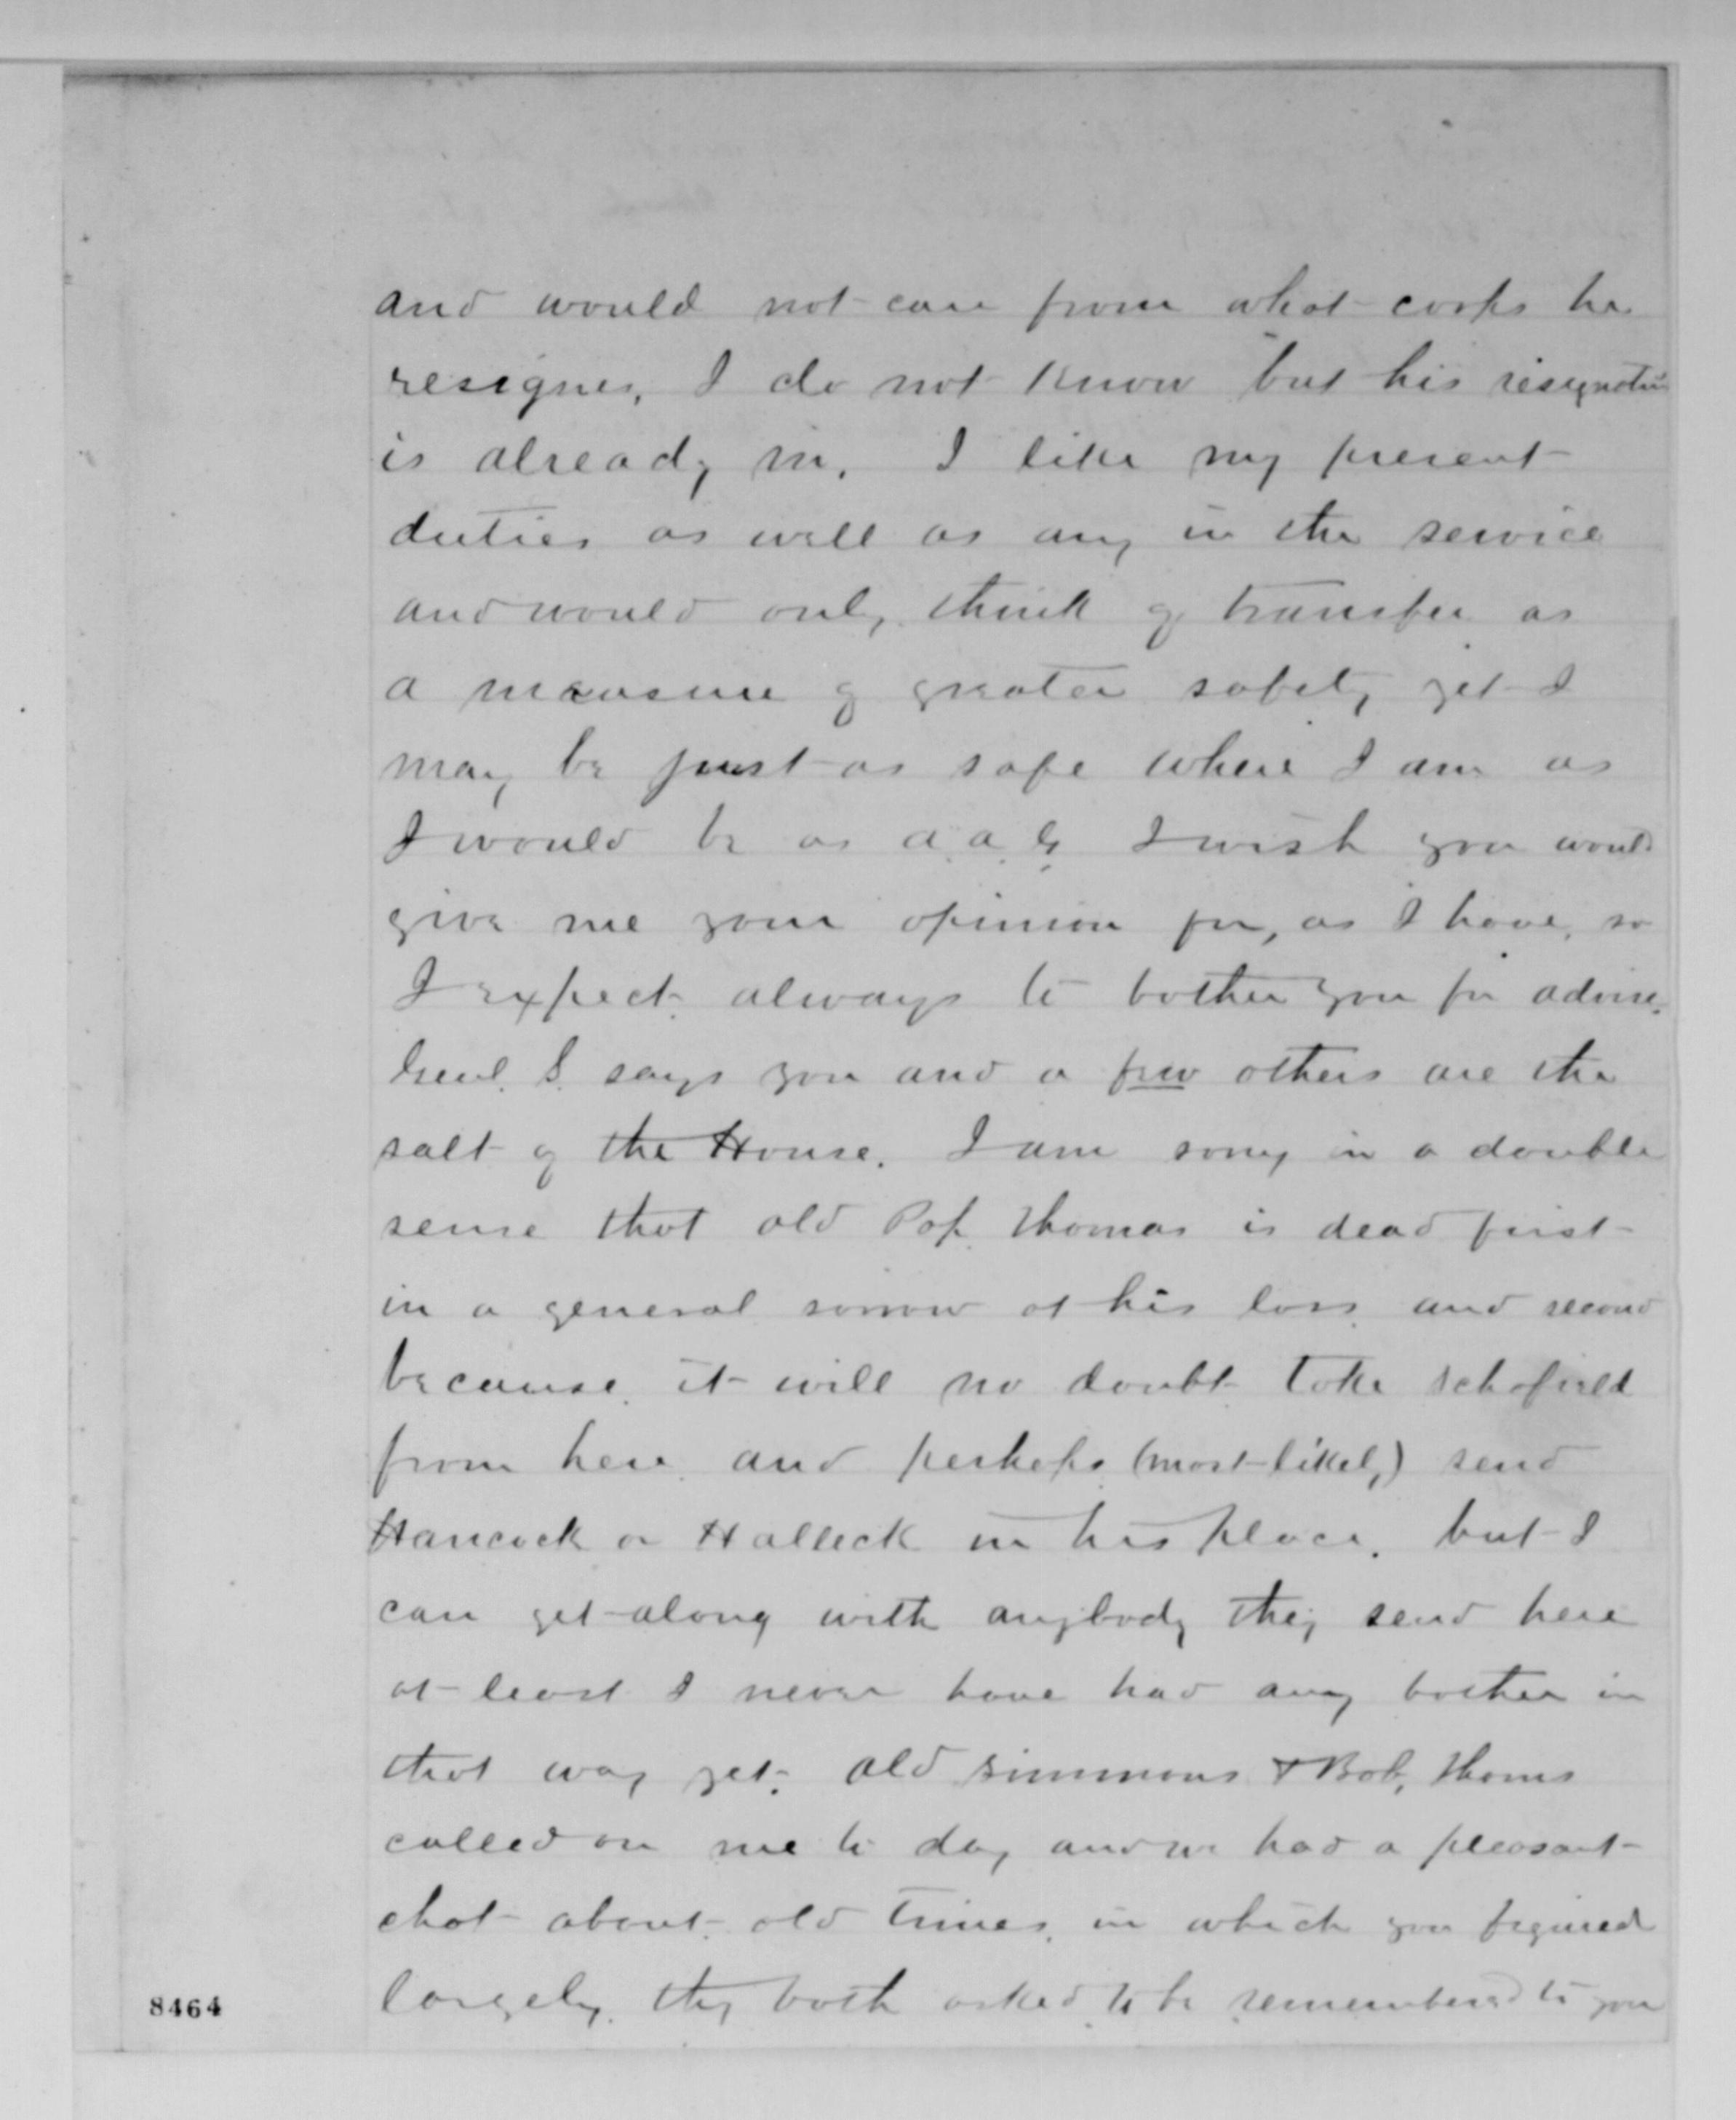 and would not care from what corps he
resigns, I do not know but his resignation
is already in. I like my present
duties as well as any in the service
and would only think of transfer as
a measure of greater safety yet I
may be just as safe where I am as
I would be as a.a.G. I wish you would
give me your opinion for, as I have, so
I expect always to bother you for advise.
Genl. S. says you and a few others are the
salt of the House. I am sorry in a double
sense that old Pap Thomas is dead first
in a general sorrow at his loss and second
because it will no doubt take Schofield
from here and perhaps (most likely) send
Hancock or Halleck in his place. but I
can get along with anybody they send here
at least I never have had any bother in
that way yet. Old Simmons & Bob, Thoms
called on me to day and we had a pleasant
chat about old times in which you figured
largely. they both asked to be remembered to you
8464